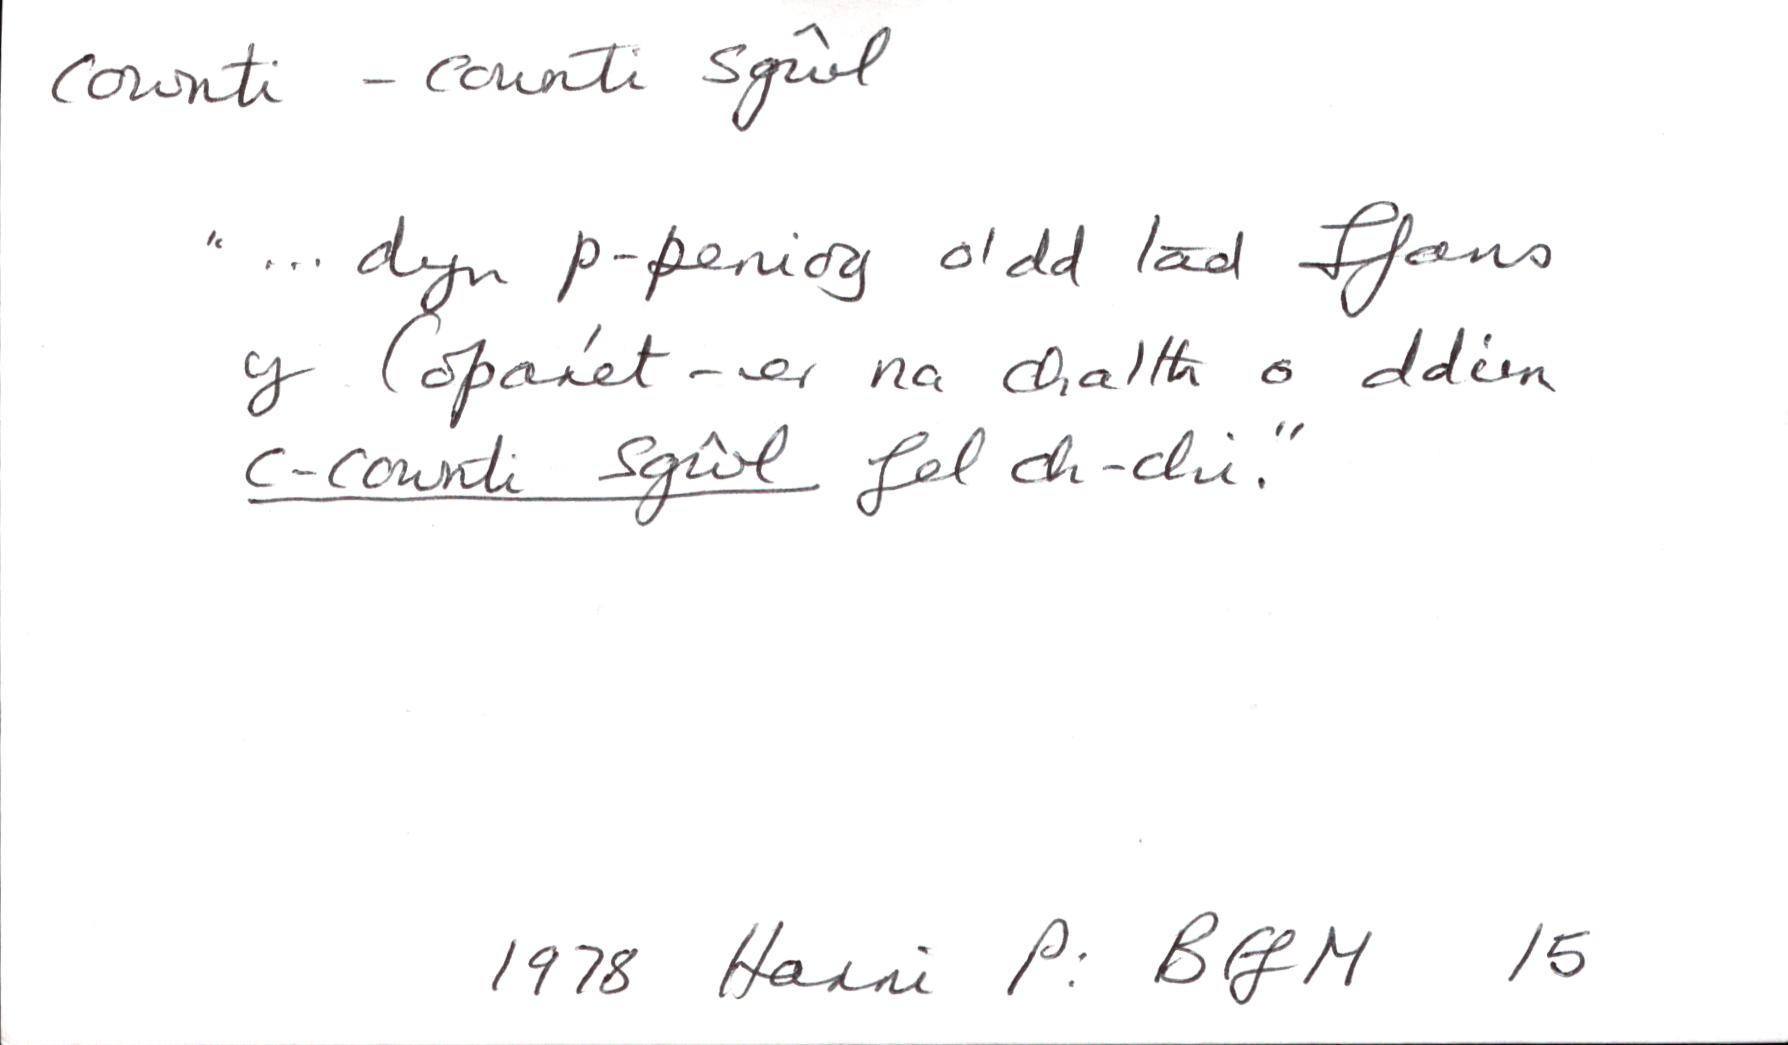 cownti - cownti sgŵl
"... dyn p-peniog o'dd tād Ifans
y Coparét-ier na challth o ddim
c-cownti sgŵl fel ch-chi."
1978 Harri P: BGM 15